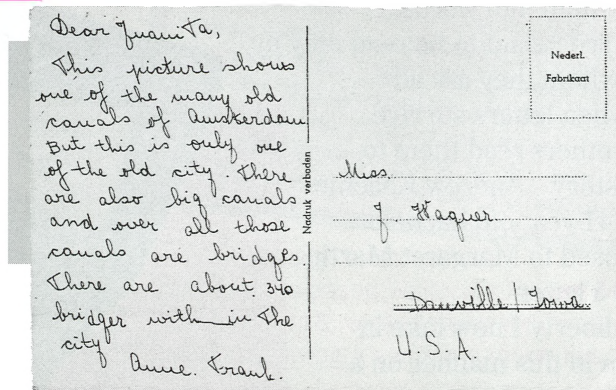 Dear Juanita,
This picture shows
one of the many old
canals of Amsterdam
But this is only one
of the old city. There
are also big canals
and over all those
canals are bridges.
There are about 340
bridger with in the
city
Anne. Frank.
Nadruk verboden
Nederl.
Fabrikaat
Miss.
J. Wagner.
Danville / Iowa
U.S.A.